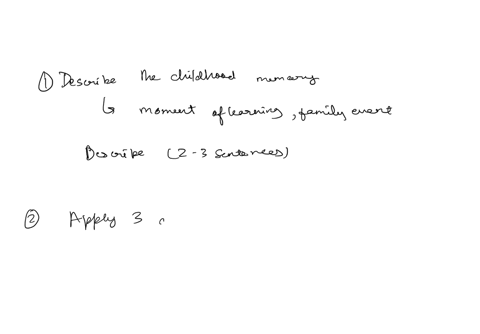 ① Describe the childhood memory
↳ moment of learning, family event
Describe (2-3 sentences)
② Apply 3